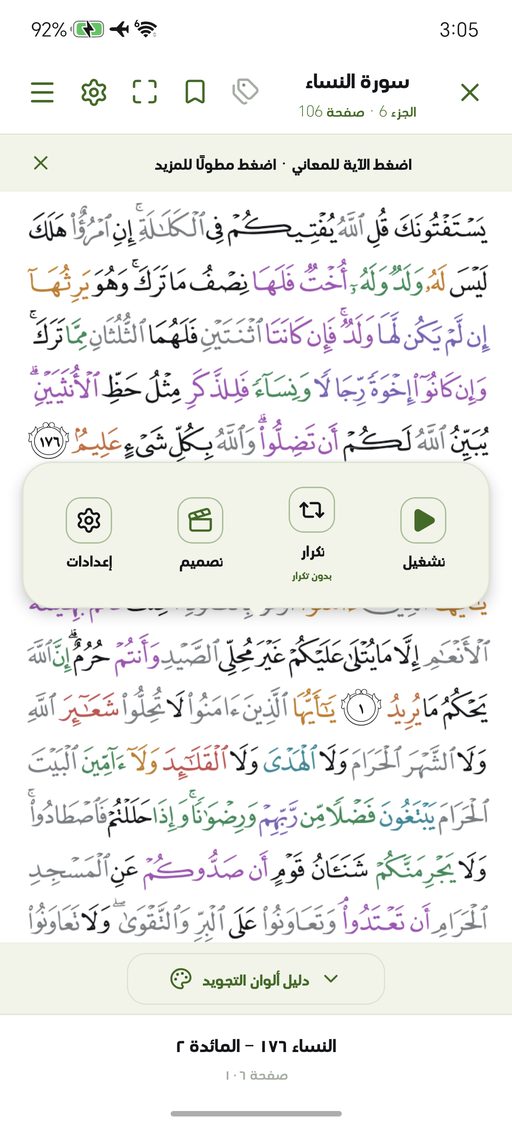 92%
6
3:05
سورة النساء
الجزء 6 · صفحة 106
اضغط الآية للمعاني · اضغط مطولًا للمزيد
يَسْتَفْتُونَكَ قُلِ ٱللَّهُ يُفْتِيكُمْ فِى ٱلْكَلَٰلَةِ ۚ إِنِ ٱمْرُؤٌا۟ هَلَكَ
لَيْسَ لَهُۥ وَلَدٌ وَلَهُۥٓ أُخْتٌ فَلَهَا نِصْفُ مَا تَرَكَ ۚ وَهُوَ يَرِثُهَآ
إِن لَّمْ يَكُن لَّهَا وَلَدٌ ۚ فَإِن كَانَتَا ٱثْنَتَيْنِ فَلَهُمَا ٱلثُّلُثَانِ مِمَّا تَرَكَ ۚ
وَإِن كَانُوٓا۟ إِخْوَةً رِّجَالًا وَنِسَآءً فَلِلذَّكَرِ مِثْلُ حَظِّ ٱلْأُنثَيَيْنِ ۗ
يُبَيِّنُ ٱللَّهُ لَكُمْ أَن تَضِلُّوا۟ ۗ وَٱللَّهُ بِكُلِّ شَىْءٍ عَلِيمٌۢ ١٧٦
تشغيل
تكرار
بدون تكرار
تصميم
إعدادات
ٱلْأَنْعَٰمِ إِلَّا مَا يُتْلَىٰ عَلَيْكُمْ غَيْرَ مُحِلِّى ٱلصَّيْدِ وَأَنتُمْ حُرُمٌ ۗ إِنَّ ٱللَّهَ
يَحْكُمُ مَا يُرِيدُ ١ يَٰٓأَيُّهَا ٱلَّذِينَ ءَامَنُوا۟ لَا تُحِلُّوا۟ شَعَٰٓئِرَ ٱللَّهِ
وَلَا ٱلشَّهْرَ ٱلْحَرَامَ وَلَا ٱلْهَدْىَ وَلَا ٱلْقَلَٰٓئِدَ وَلَآ ءَآمِّينَ ٱلْبَيْتَ
ٱلْحَرَامَ يَبْتَغُونَ فَضْلًا مِّن رَّبِّهِمْ وَرِضْوَٰنًا ۚ وَإِذَا حَلَلْتُمْ فَٱصْطَادُوا۟ ۚ
وَلَا يَجْرِمَنَّكُمْ شَنَـَٔانُ قَوْمٍ أَن صَدُّوكُمْ عَنِ ٱلْمَسْجِدِ
ٱلْحَرَامِ أَن تَعْتَدُوا۟ ۘ وَتَعَاوَنُوا۟ عَلَى ٱلْبِرِّ وَٱلتَّقْوَىٰ ۖ وَلَا تَعَاوَنُوا۟
دليل ألوان التجويد
النساء ١٧٦ – المائدة ٢
صفحة ١٠٦